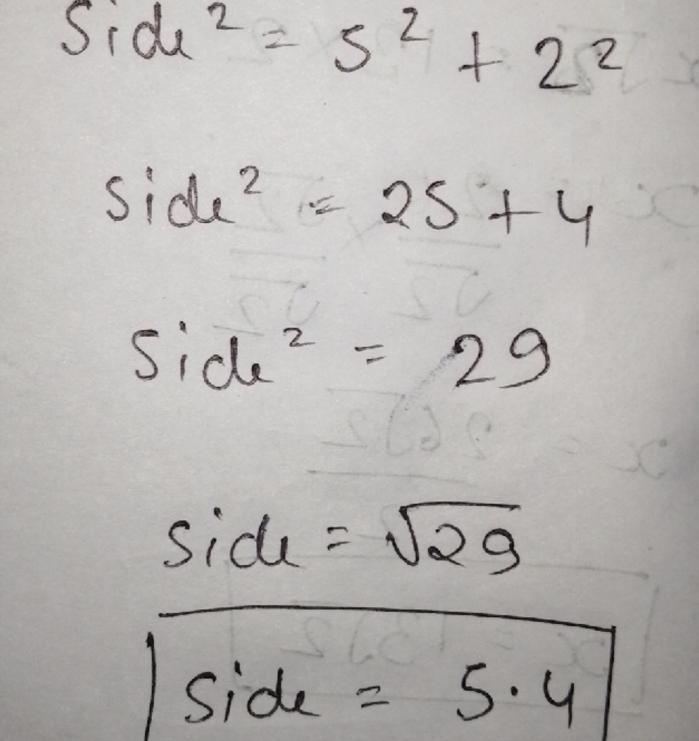 Side² = 5² + 2²
Side² = 25 + 4
Side² = 29
Side = √29
Side = 5.4